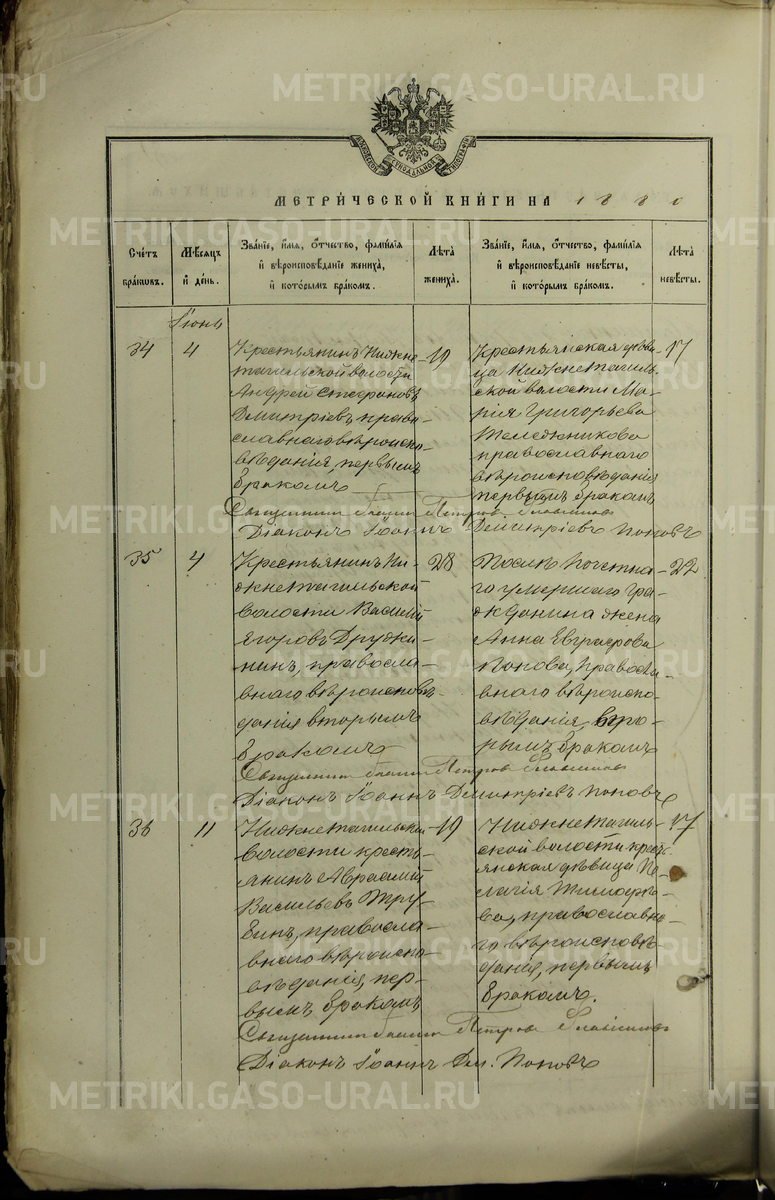 METRIKI.GASO-URAL.RU
МЕТРИ́ЧЕСКОЙ КНИ́ГИ НА 1880
Счéтъ бра́ковъ.
Мѣ́сяцъ и҆ де́нь.
Зва́нїе, и҆́мѧ, ѻ҆́тчество, фами́лїѧ и҆ вѣроисповѣ́данїе жениха̀, и҆ кото́рымъ бра́комъ.
Лѣ́та жениха̀.
Зва́нїе, и҆́мѧ, ѻ҆́тчество, фами́лїѧ и҆ вѣроисповѣ́данїе невѣ́сты, и҆ кото́рымъ бра́комъ.
Лѣ́та невѣ́сты.
Іюнь
34
4
Крестьянинъ Нижне-
тагильской волости
Андрей Стефановъ
Дмитріевъ, право-
славнаго вѣроиспо-
вѣданія, первымъ
бракомъ
19
Крестьянская дѣви-
ца Нижнетагиль-
ской волости Ма-
рія Григорьева
православнаго
вѣроисповѣданія
первымъ бракомъ
17
Священникъ Петров
Діаконъ Іоаннъ Дмитріевъ Поповъ
35
4
Крестьянинъ Ни-
жнетагильской
волости Василій
Егоровъ Дружи-
нинъ, правосла-
внаго вѣроисповѣ-
данія вторымъ
бракомъ
28
Послѣ почетна-
го умершаго гра-
жданина жена
Анна Евграфова
Попова, правосла-
внаго вѣроиспо-
вѣданія, вто-
рымъ бракомъ
22
Священникъ Петров
Діаконъ Іоаннъ Дмитріевъ Поповъ
36
11
Нижнетагильской
волости кресть-
янинъ Авраамій
Васильевъ Тру-
бинъ, правосла-
внаго вѣроиспо-
вѣданія, пер-
вымъ бракомъ
19
Нижнетагиль-
ской волости крестъ-
янская дѣвица Пе-
лагія Тимофѣ-
ва, православна-
го вѣроисповѣ-
данія, первымъ
бракомъ.
17
Священникъ Петров
Діаконъ Іоаннъ Дм. Поповъ